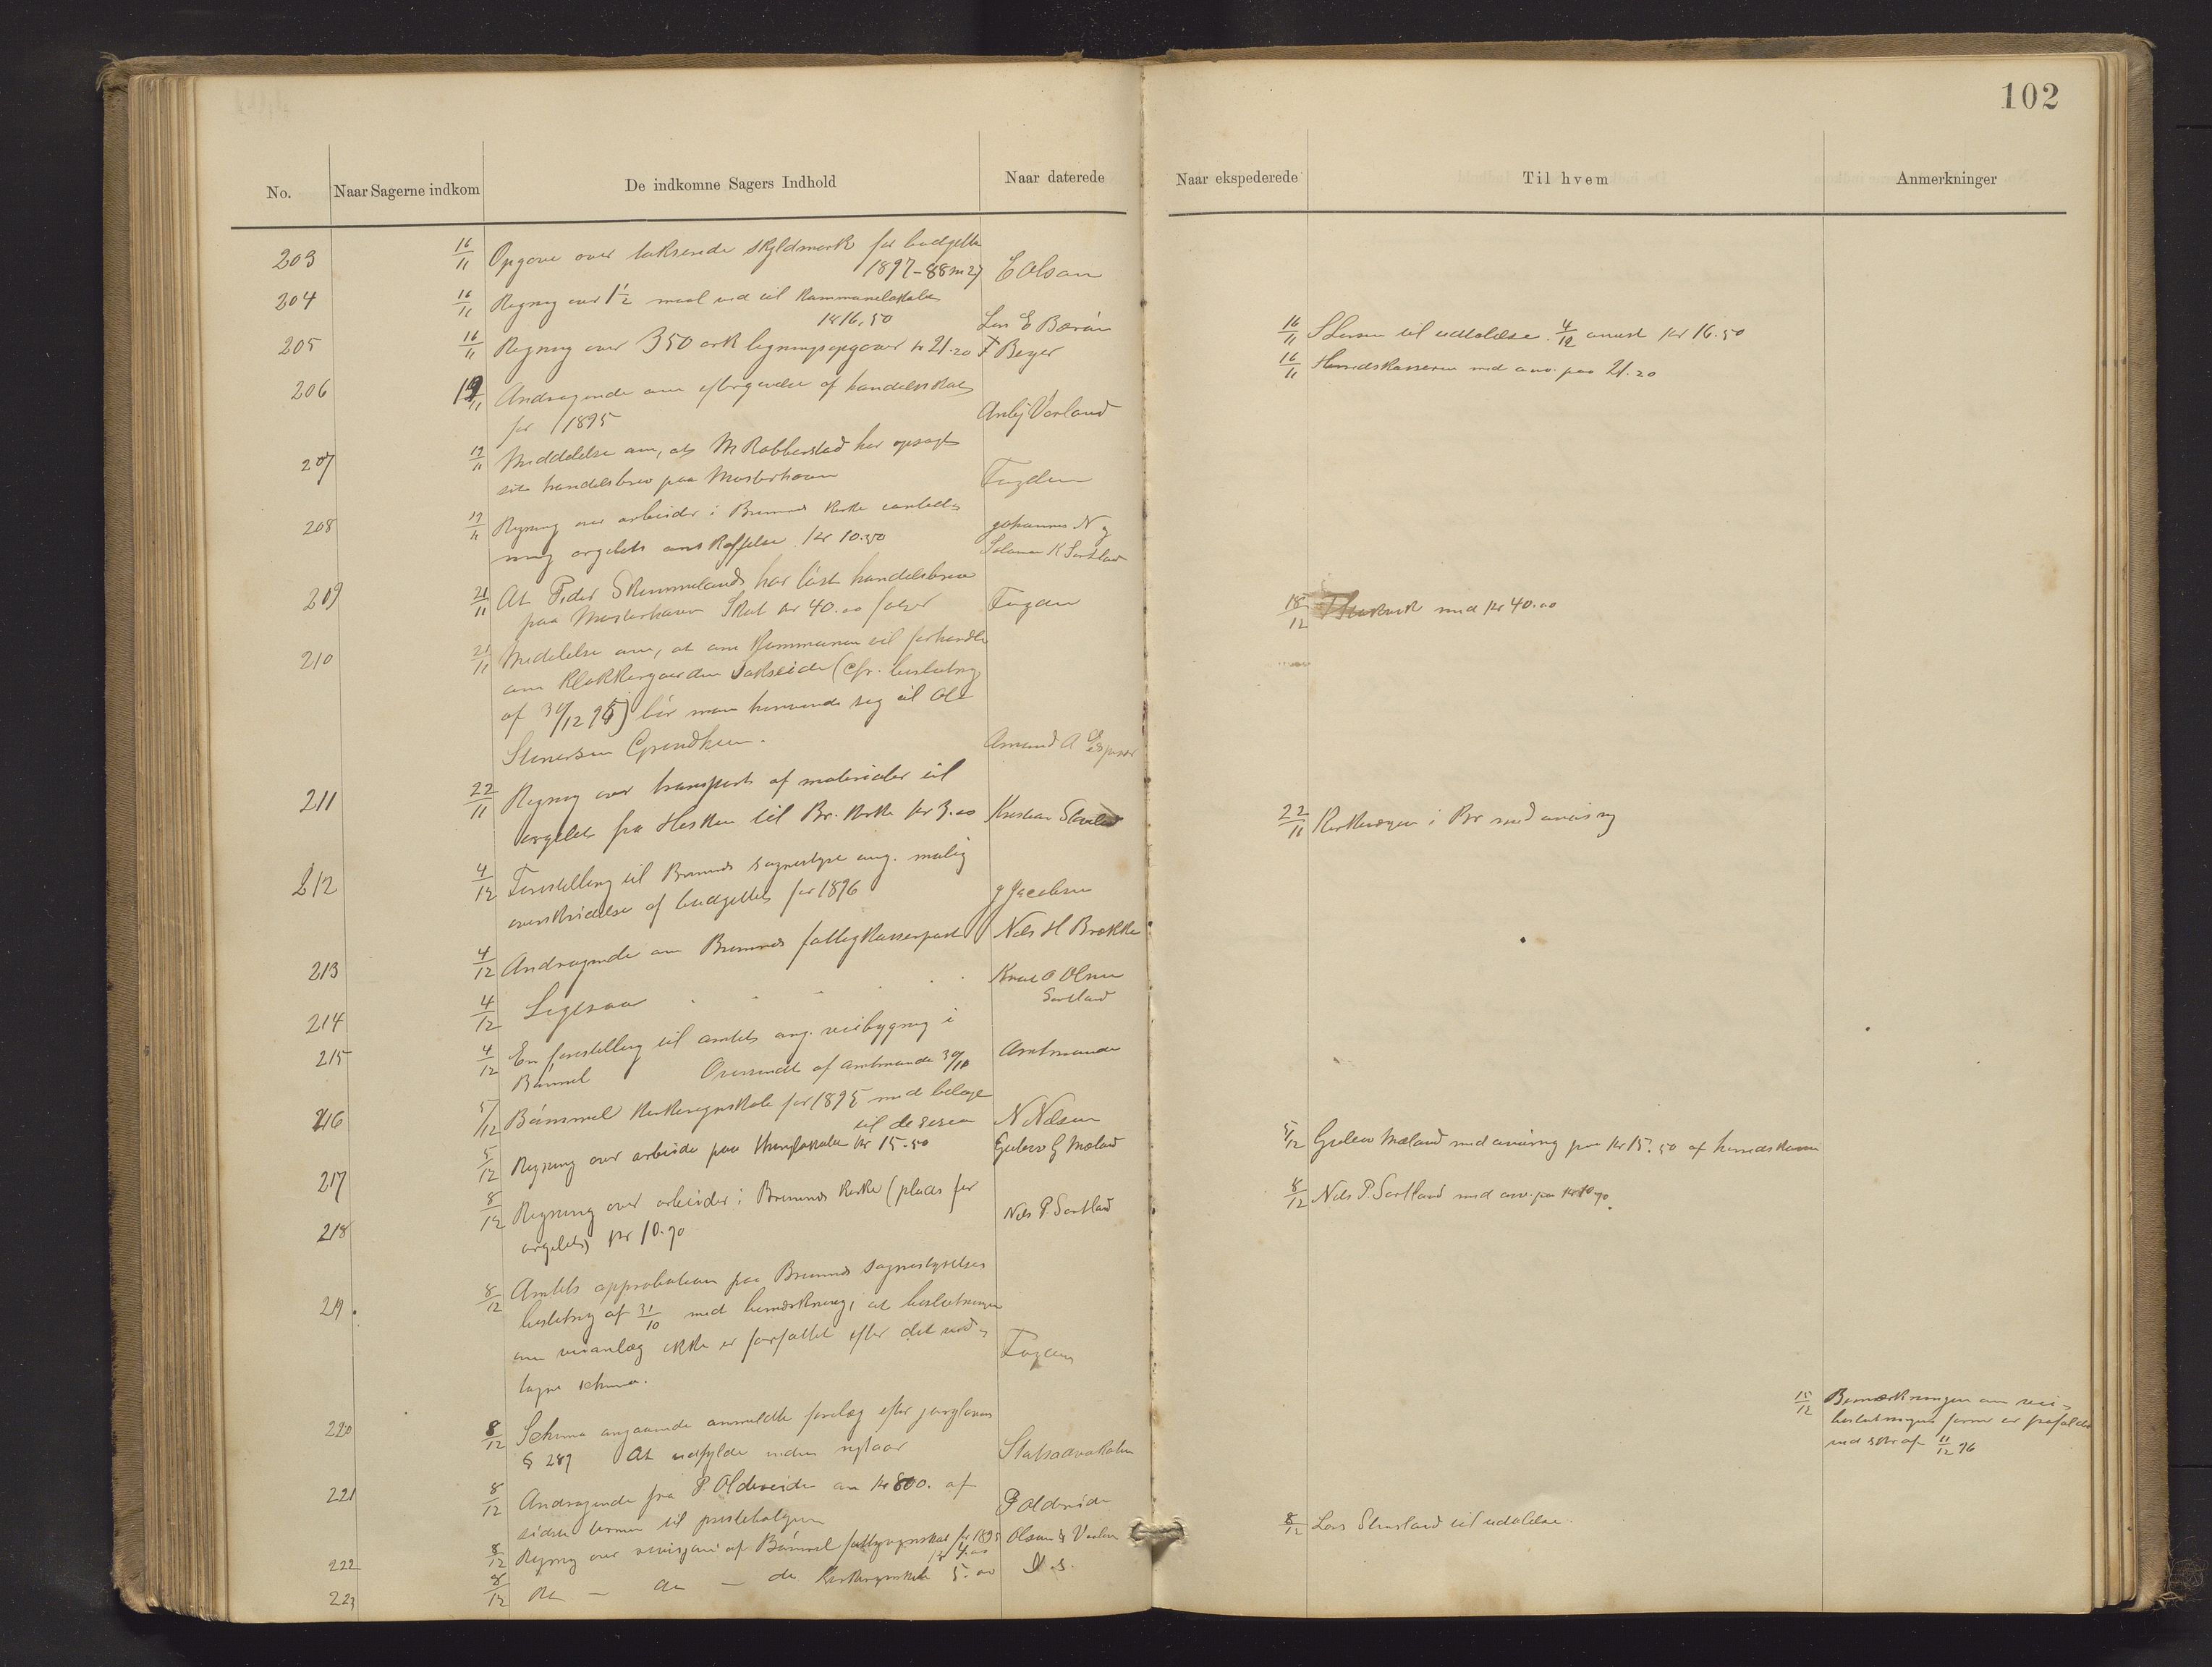 102
No. Naar Sagerne indkom De indkomne Sagers Indhold Naar daterede Naar ekspederede Til hvem Anmerkninger
203 16/11 Opgave over skyldmark for budgette
1897-88 E Olsen
204 16/11 Regning over 1½ maal ved til
16,50 Lars E
16/11 til udtalelse. 4/12 anvist kr 16.50
205 16/11 Regning over 350 ark ligningsopgaver kr 21.20 F Beyer
16/11 Herredskasseren med anv. paa 21.20
206 19/11 Andragende om eftergivelse af handelsskat
for 1895 Vorland
207 19/11 Meddelelse om, at M Robberstad har opsagt
sit handelsbrev paa Mosterhavn Fogden
208 19/11 Regning over arbeider i Bremnes kirke anled-
ning orgelets anskaffelse kr 10.50 Johannes N og
K Sortland
209 21/11 At Peder Skimmeland har løst handelsbrev
paa Mosterhavn Skat kr 40.00 følger Fogden
18/12 med kr 40.00
210 21/11 Meddelelse om, at om kommunen vil forhandle
om Klokkergaarden (cfr. beslutning
af 30/12 95) bør man henvende sig til Ole
Stenersen Grindheim. Amund A
211 22/11 Regning over transport af materialer til
orgelet fra Hisken til Br. kirke kr 3.00 Kristian
22/11 Kirkeværgen i Br med anvisning
212 4/12 Forestilling til Bremnes sognestyre ang. mulig
overskridelse af budgettet for 1896 J Jacobsen
213 4/12 Andragende om Bremnes fattigkasserpost Nils H Brække
214 4/12 Ligesaa Knut O Olsen
Sortland
215 4/12 En forestilling til amtet ang. veibygning i
Bømmel Oversendt af amtmanden 30/10 Amtmanden
216 5/12 Bømmel kirkeregnskab for 1895 med belage
til decision N Nilsen
217 5/12 Regning over arbeide paa kr 15.50 Gulew G Mæland
5/12 Gulew Mæland med anvisning paa kr 15.50 af herredskassen
218 8/12 Regning over arbeider i Bremnes kirke (plads for
orgelet) kr 10.70 Nils P. Sortland
8/12 Nils P. Sortland med anv. paa kr 10.70.
219 8/12 Amtets approbation paa Bremnes sognestyrelses
beslutning af 31/10 med bemærkning, at beslutningen
om veianlæg ikke er forfattet efter det ved-
tagne schema. Fogden
15/12 Bemærkningen om vei-
beslutningens form er frafaldet
ved skr af 11/12 96
220 8/12 Schema angaaende anmeldte forelæg efter jurylovens
§ 287 At udfylde inden nytaar Statsadvokaten
221 8/12 Andragende fra P Oldereide om kr 800. af
sidste termin til prestebolgen P Oldereide
8/12 Lars til udtalelse.
222 8/12 Regning over revisjon af Bømmel fattigregnskab for 1895 Olsen &
kr 4.00
223 8/12 Re — do — do kirkeregnskab 5.00 D.s.